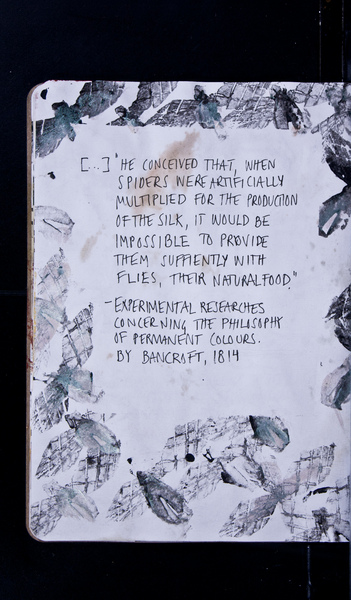 [...] "HE CONCEIVED THAT, WHEN
SPIDERS WERE ARTIFICIALLY
MULTIPLIED FOR THE PRODUCTION
OF THE SILK, IT WOULD BE
IMPOSSIBLE TO PROVIDE
THEM SUFFIENTLY WITH
FLIES, THEIR NATURAL FOOD."
- EXPERIMENTAL RESEARCHES
CONCERNING THE PHILOSOPHY
OF PERMANENT COLOURS.
BY BANCROFT, 1814